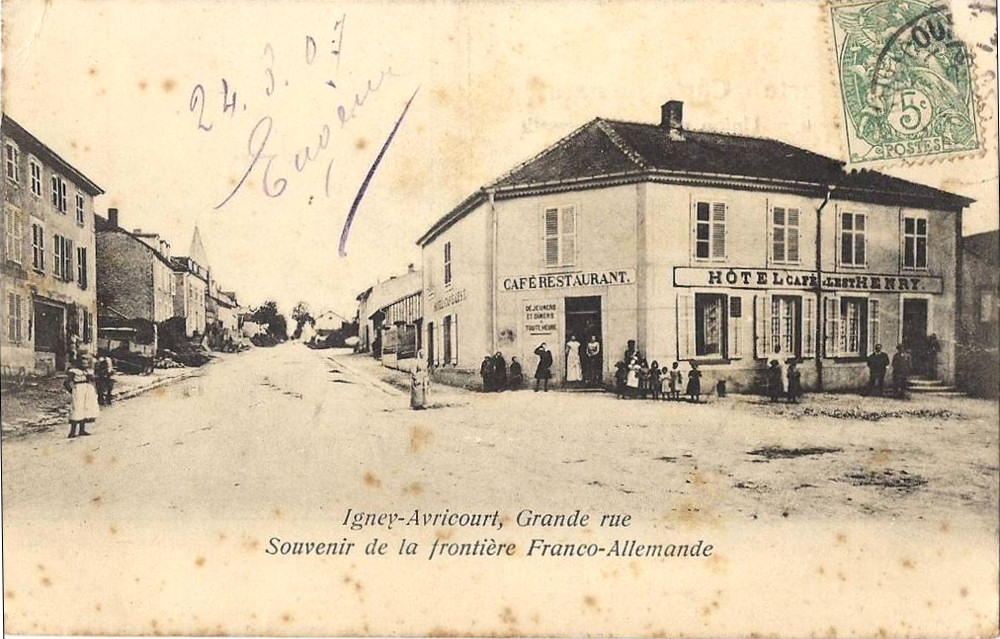 24.3.07
5c
POSTES
CAFÉ RESTAURANT.
DÉJEUNERS
ET DINERS
À
TOUTE HEURE
HÔTEL CAFÉ DE L'EST HENRY.
Igney-Avricourt, Grande rue
Souvenir de la frontière Franco-Allemande